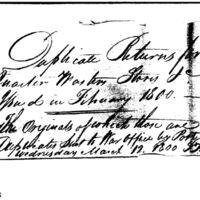 Duplicate Returns for
Quarter Masters Stores &c
Issued in February 1800.
The Originals of which these are
Duplicates Sent to War Office by Post
Wednesday March 19. 1800